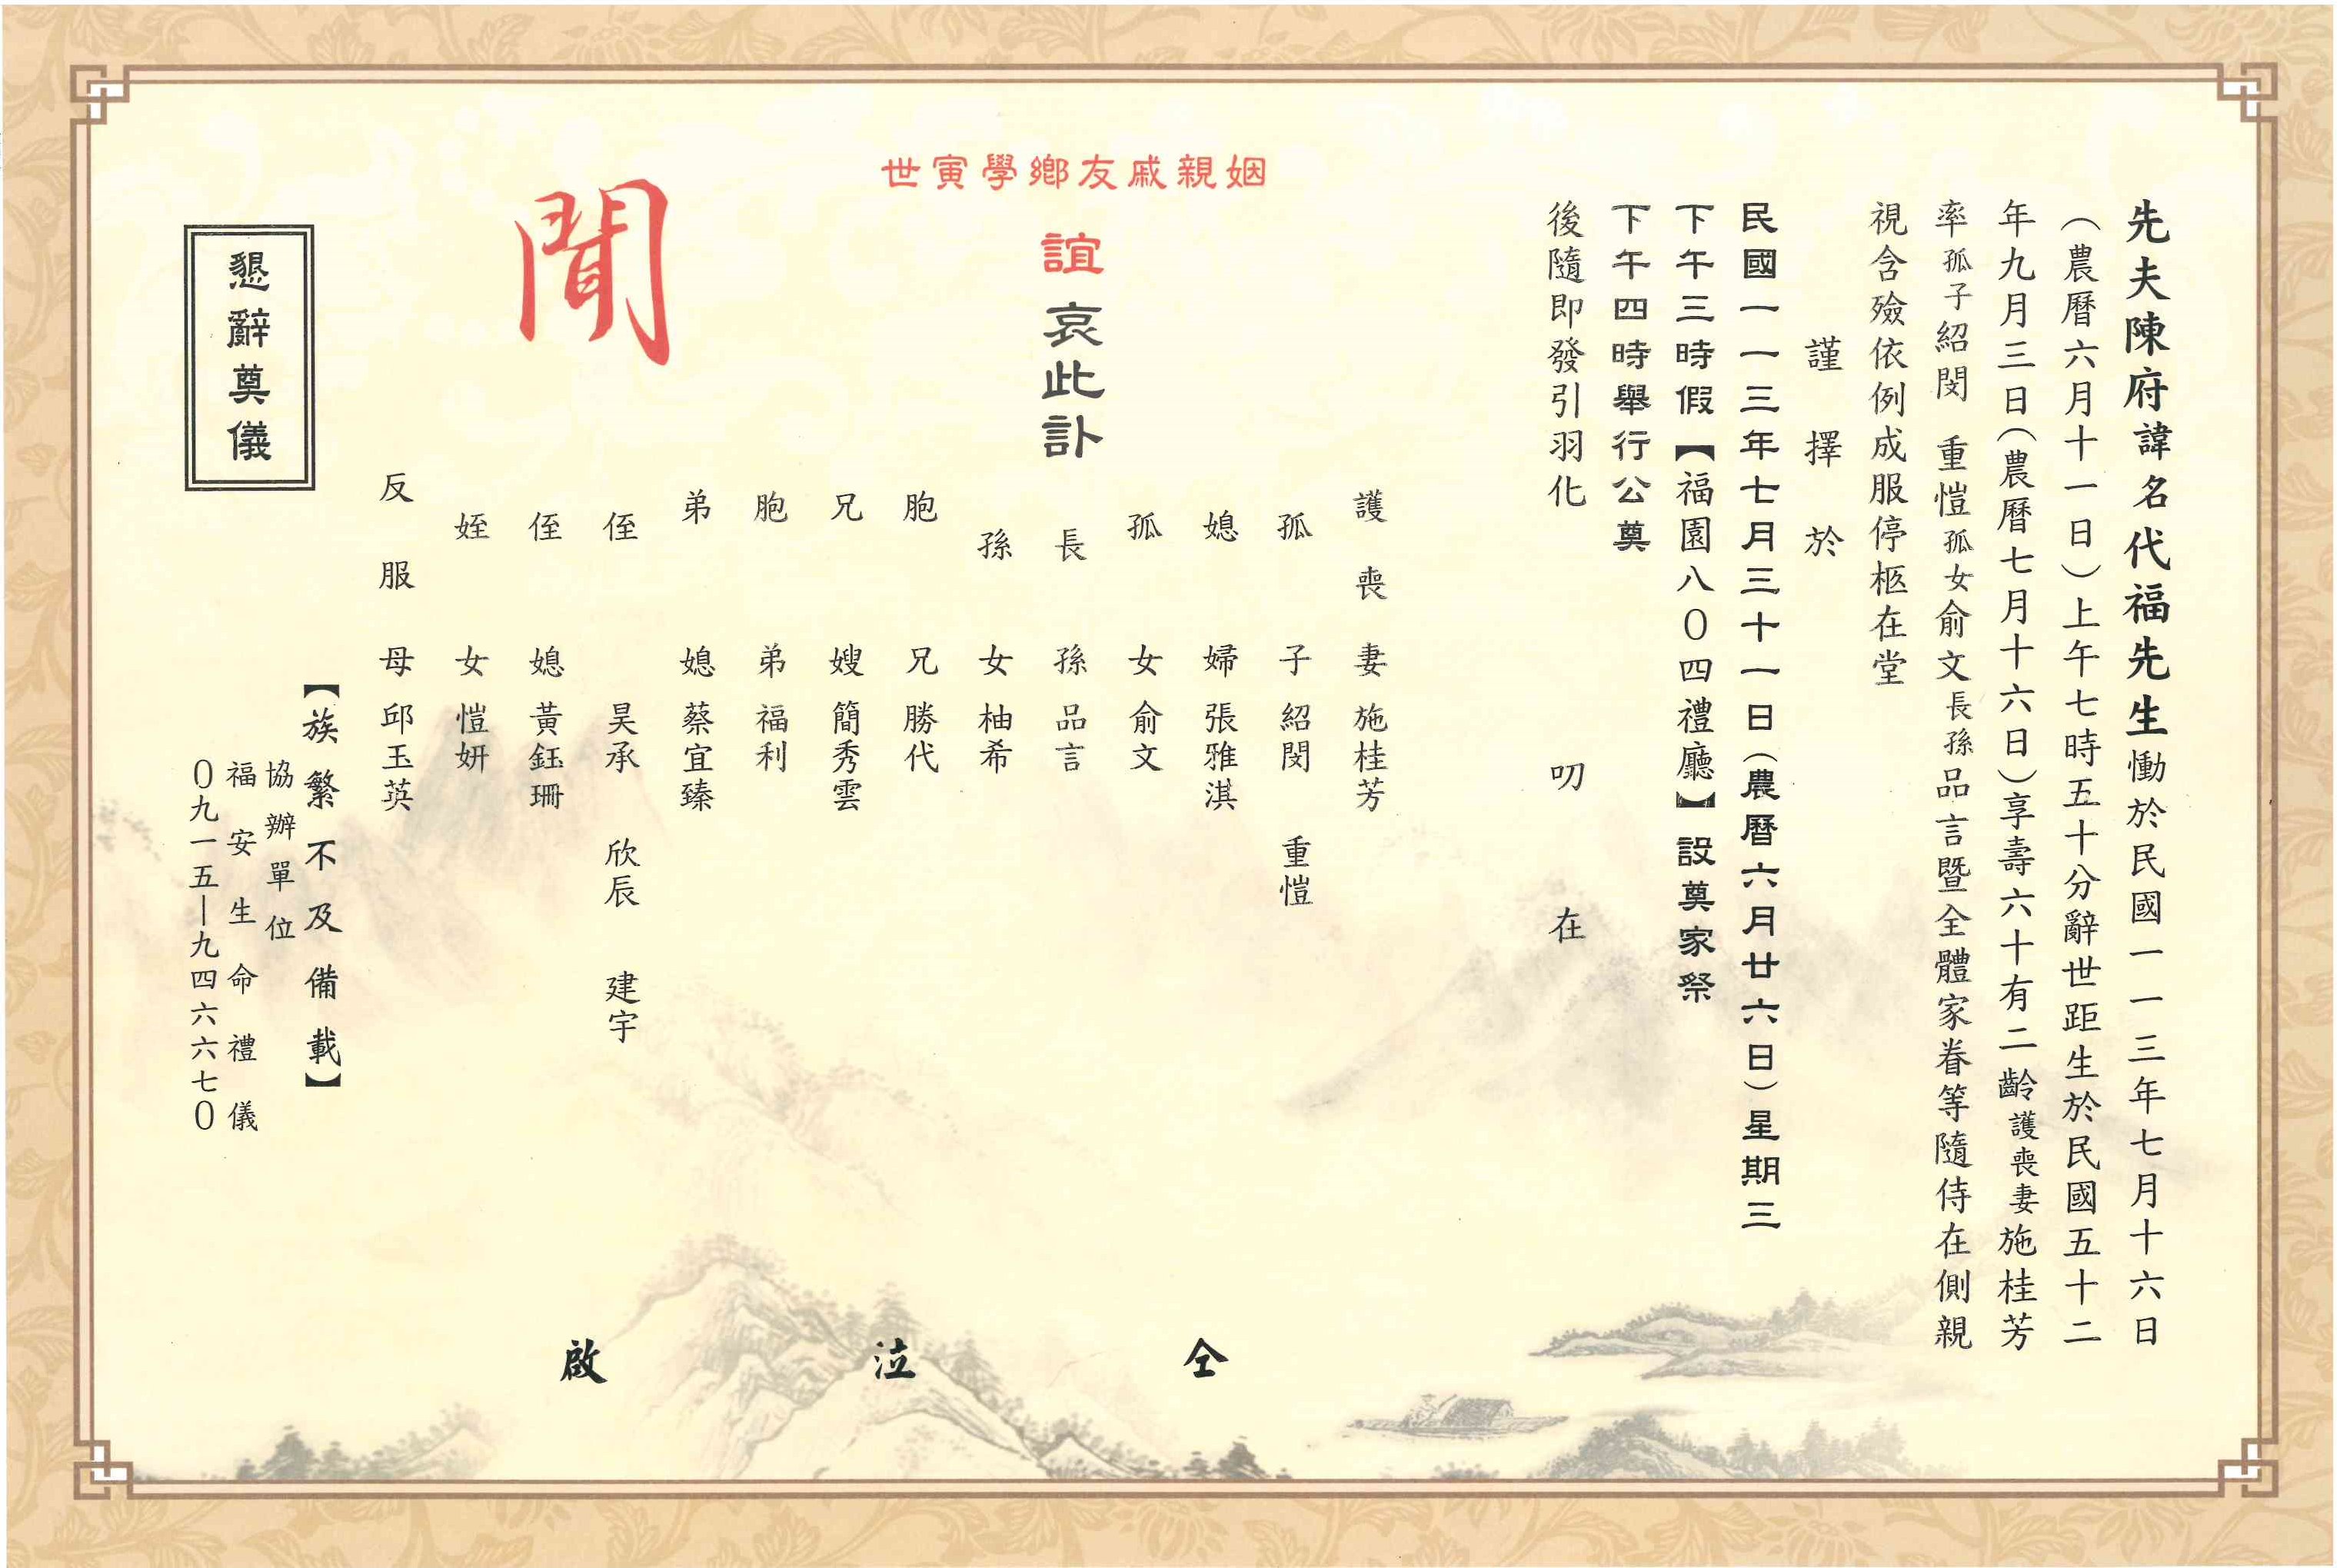 先夫陳府諱名代福先生慟於民國一一三年七月十六日
（農曆六月十一日）上午七時五十分辭世距生於民國五十二
年九月三日（農曆七月十六日）享壽六十有二齡護喪妻施桂芳
率孤子紹閔 重愷孤女俞文長孫品言暨全體家眷等隨侍在側親
視含殮依例成服停柩在堂
謹擇於
民國一一三年七月三十一日（農曆六月廿六日）星期三
下午三時假【福園八0四禮廳】設奠家祭
下午四時舉行公奠
後隨即發引羽化 叨在
姻親戚友鄉學寅世
誼哀此訃
聞
護喪妻 施桂芳
孤子 紹閔 重愷
媳婦 張雅淇
孤女 俞文
長孫 品言
孫女 柚希
胞兄 勝代
兄嫂 簡秀雲
胞弟 福利
弟媳 蔡宜臻
侄 昊承 欣辰 建宇
侄媳 黃鈺珊
姪女 愷妍
反服母 邱玉英
仝泣啟
【族繁不及備載】
懇辭奠儀
協辦單位
福安生命禮儀
0九一五—九四六六七0